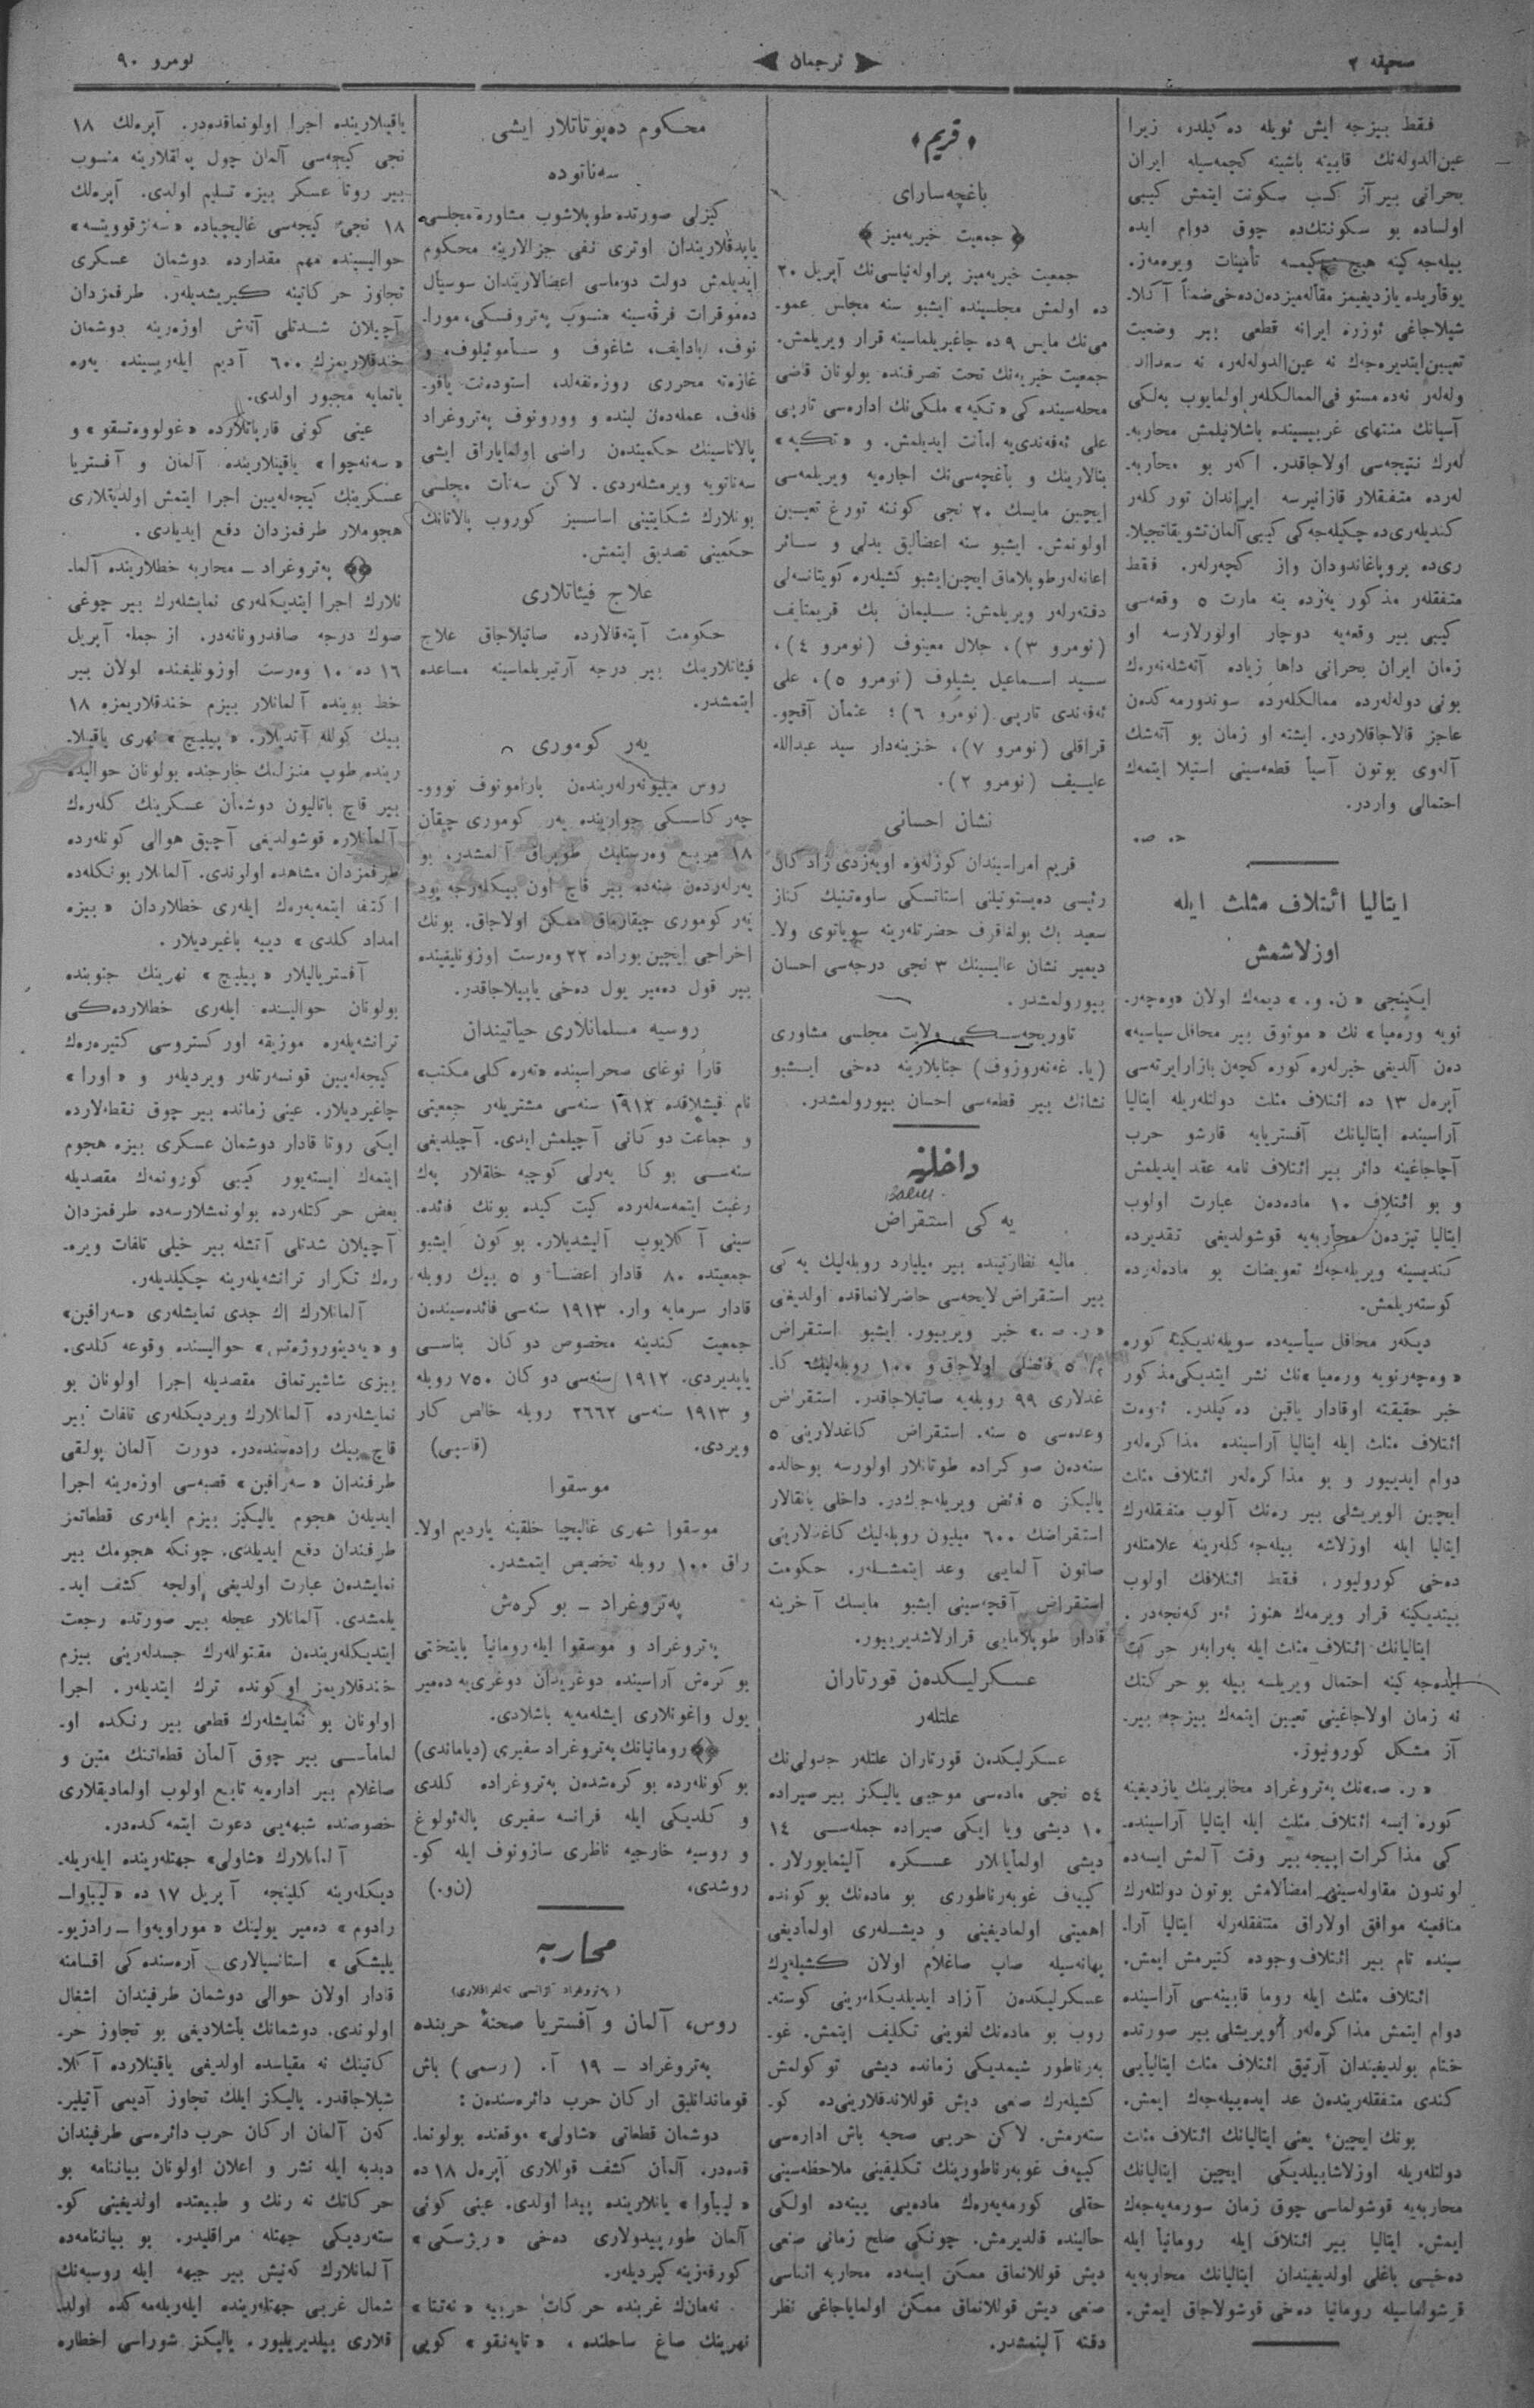 صحیفه ٢
ترجمان
نومرو ٩٠
فقط بیزجه ایش ئویله ده‌کیلدر، زیرا
عین‌الدوله‌نك قابینه باشینه کچمه‌سیله ایران
بحرانی بیر آز کسب سکونت ایتمش کیبی
اولساده بو سکونتك‌ده چوق دوام ایده
بیله‌جه‌کینه هیچ کیمسه تأمینات ویره‌مه‌ز.
یوقاریده یازدیغیمز مقاله‌میزدن‌ده‌خی ضمناً آکلا-
شیلاجاغی ئوزره ایرانه قطعی بیر وضعیت
تعیین ایتدیره‌جه‌ك نه عین‌الدوله‌لەر، نه سعدالد
وله‌لەر نه‌ده مستوفی‌الممالکلەر اولمایوب بەلکی
آسیانك منتهای غربیسینده باشلانیلمش محاربه-
لەرك نتیجه‌سی اولاجاقدر. اکەر بو محاربه-
لەرده متفقلار قازانیرسه ایراندان تورکلەر
کندیلەری‌ده چکیله‌جه‌کی کیبی آلمان تشویقاتجیلا-
ری‌ده پروپاغاندودان واز کچەرلەر. فقط
متفقلەر مذکور یەرده ینه مارت ٥ وقعه‌سی
کیبی بیر وقعه‌یه دوچار اولورلارسه او
زمان ایران بحرانی داها زیاده آتەشلەنەرەك
بونی دولەلەرده ممالکلەرده سوندورمەکدن
عاجز قالاجاقلاردر. ایشته او زمان بو آتەشك
آلەوی بوتون آسیا قطعه‌سینی استیلا ایتمه‌ك
احتمالی واردر.
ح. ص.
ایتالیا ائتلاف مثلث ایله
اوزلاشمش
ایکینجی «ن. و.» دیمەك اولان «وەچەر-
نویه ورەمیا» نك «موثوق بیر محافل سیاسیه»
دن آلدیغی خبرلەره کوره کچەن بازارایرتەسی
آپرەل ١٣ ده ائتلاف مثلث دولتلریله ایتالیا
آراسینده ایتالیانك آفستریایه قارشو حرب
آچاجاغینه دائر بیر ائتلاف نامه عقد ایدیلمش
و بو ائتلاف ١٠ ماده‌دەن عبارت اولوب
ایتالیا تیزدن محاربه‌یه قوشولدیغی تقدیرده
کندیسینه ویریله‌جه‌ك تعویضات بو ماده‌لەرده
کوستەریلمش.
دیکەر محافل سیاسیه‌ده سویلەندیکینه کوره
«وەچەرنویه ورەمیا» نك نشر ایتدیکی مذکور
خبر حقیقته اوقادار یاقین ده‌کیلدر. ئەوەت
ائتلاف مثلث ایله ایتالیا آراسینده مذاکره‌لەر
دوام ایدییور و بو مذاکره‌لەر ائتلاف مثلث
ایچین الویریشلی بیر رەنك آلوب متفقلەرك
ایتالیا ایله اوزلاشه بیله‌جه‌کلەرینه علامتلەر
ده‌خی کورولیور. فقط ائتلافك اولوب
بیتدیکینه قرار ویرمەك هنوز ئەرکەنجەدر.
ایتالیانك ائتلاف مثلث ایله بەرابەر حرکت
ایده‌جه‌کینه احتمال ویریلسه بیله بو حرکتك
نه زمان اولاجاغینی تعیین ایتمەك بیزجه بیر-
آز مشکل کورونیور.
«ر. ص.» نك پەتروغراد مخابرینك یازدیغینه
کوره ایسه ائتلاف مثلث ایله ایتالیا آراسینده-
کی مذاکرات ایپیجه بیر وقت آلمش ایسەده
لوندون مقاوله‌سینی امضالامش بوتون دولتلەرك
منافعینه موافق اولاراق متفقلەرله ایتالیا آرا-
سینده تام بیر ائتلاف وجوده کتیرمش ایمش.
ائتلاف مثلث ایله روما قابینه‌سی آراسینده
دوام ایتمش مذاکره‌لەر الویریشلی بیر صورتده
ختام بولدیغیندان آرتیق ائتلاف مثلث ایتالیایی
کندی متفقلەریندەن عد ایده‌بیله‌جه‌ك ایمش.
بونك ایچین؛ یعنی ایتالیانك ائتلاف مثلث
دولتلەریله اوزلاشابیلدیکی ایچین ایتالیانك
محاربه‌یه قوشولماسی چوق زمان سورمه‌یه‌جه‌ك
ایمش. ایتالیا بیر ائتلاف ایله رومانیا ایله
ده‌خی باغلی اولدیغیندان ایتالیانك محاربه‌یه
قوشولماسیله رومانیا ده‌خی قوشولاجاق ایمش.
«قریم»
باغچه‌سارای
﴿ جمعیت خیریه‌میز ﴾
جمعیت خیریه‌میز پراولەنیاسی‌نك آپریل ٢٠
ده اولمش مجلسینده ایشبو سنه مجلس عمو-
می‌نك مایس ٩ ده جاغیریلماسینه قرار ویریلمش.
جمعیت خیریه‌نك تحت تصرفنده بولونان قاضی
محله‌سینده‌کی «تکیه» ملکی‌نك اداره‌سی تارپی
علی ئەفەندی‌یه امانت ایدیلمش. و «تکیه»
بنالارینك و باغچه‌سی‌نك اجاره‌یه ویریلمه‌سی
ایچین مایسك ٢٠ نجی کوننه تورغ تعیین
اولونمش. ایشبو سنه اعضالیق بدلی و سائر
اعانه‌لەر طوپلاماق ایچین ایشبو کشیلەره کویتانسه‌لی
دفتەرلەر ویریلمش: سلیمان بك قریمتایف
(نومرو ٣)، جلال معینوف (نومرو ٤)،
سید اسماعیل بشیلوف (نومرو ٥)، علی
ئەفەندی تارپی (نومرو ٦)؛ عثمان آقچو-
قراقلی (نومرو ٧)، خزینه‌دار سید عبدالله
علییف (نومرو ٢).
نشان احسانی
قریم امراسیندان کوزلەوه اویەزدی زادکان
رئیسی دەیستویتیلنی استاتسکی ساوەتنیك کناز
سعید بك بولغاقوف حضرتلەرینه سویاتوی ولا-
دیمیر نشان عالیسینك ٣ نجی درجه‌سی احسان
بیورولمشدر.
تاوریچەسکی ولایت مجلسی مشاوری
(یا. غەنەروزوف) جنابلارینه ده‌خی ایشبو
نشانك بیر قطعه‌سی احسان بیورولمشدر.
داخلیه
یه‌کی استقراض
مالیه نظارتینده بیر میلیارد روبله‌لیك یه‌کی
بیر استقراض لایحه‌سی حاضرلانماقده اولدیغنی
«ر. ص.» خبر ویرییور. ایشبو استقراض
٥ فائضلی اولاجاق و ١٠٠ روبله‌لیك کا-
غدلاری ٩٩ روبله‌یه صاتیلاجاقدر. استقراض
وعده‌سی ٥ سنه. استقراض کاغدلارینی ٥
سنه‌دن صوکراده طوتانلار اولورسه بوحالده
یالیکز ٥ فائض ویریله‌جه‌کدر. داخلی بانقالار
استقراضك ٦٠٠ میلیون روبله‌لیك کاغدلارینی
صاتون آلمایی وعد ایتمشلەر. حکومت
استقراض آقچه‌سینی ایشبو مایسك آخرینه
قادار طوپلامایی قرارلاشدیرییور.
عسکرلیکدەن قورتاران
علتلەر
عسکرلیکدن قورتاران علتلەر جدولی‌نك
٥٤ نجی ماده‌سی موجبی یالیکز بیر صیراده
١٠ دیشی ویا ایکی صیراده جمله‌سی ١٤
دیشی اولمایانلار عسکره آلینمایورلار.
کییەف غوبەرناطوری بو ماده‌نك بوکونده
اهمیتی اولمادیغینی و دیشلەری اولمادیغی
بهانه‌سیله صاپ صاغلام اولان کشیلەرك
عسکرلیکدن آزاد ایدیلدیکلەرینی کوستە-
روب بو ماده‌نك لغوینی تکلیف ایتمش. غو-
بەرناطور شیمدیکی زمانده دیشی توکولمش
کشیلەرك صنعی دیش قوللاندقلارینی‌ده کو-
ستەرمش. لاکن حربی صحیه باش اداره‌سی
کییەف غوبەرناطورینك تکلیفینی ملاحظه‌سینی
حقلی کورمەیەرەك ماده‌یی یینه‌ده اولکی
حالینده قالدیرمش. چونکی صلح زمانی صنعی
دیش قوللانماق ممکن ایسەده محاربه اثناسی
صنعی دیش قوللانماق ممکن اولمایاجاغی نظر
دقته آلینمشدر.
محکوم ده‌پوتاتلار ایشی
سەناتوده
کیزلی صورتده طوپلاشوب مشاوره مجلسی
یاپدقلاریندان اوتری نفی جزالارینه محکوم
ایدیلمش دولت دوماسی اعضالاریندان سوسیال
دەموقرات فرقه‌سینه منسوب پەتروفسکی، مورا-
نوف، بادایف، شاغوف و ساموئیلوف، و
غازه‌ته محرری روزەنفەلد، استودەنت یاقو-
فلەف، عمله‌دن لینده و وورونوف پەتروغراد
پالاتاسینك حکمیندەن راضی اولمایاراق ایشی
سەناتویه ویرمشلەردی. لاکن سەنات مجلسی
بونلارك شکایتینی اساسسیز کوروب پالاتانك
حکمینی تصدیق ایتمش.
علاج فیئاتلاری
حکومت آپتەقالارده صاتیلاجاق علاج
فیئاتلارینك بیر درجه آرتیریلماسینه مساعده
ایتمشدر.
یەر کوموری
روس میلیونەرلەریندەن پارامونوف نووو-
چەرکاسسکی جوارینده یەر کوموری چیقان
١٨ مربع وەرستلیك طوپراق آلمشدر. بو
یەرلەردەن سنه‌ده بیر قاچ اون بیکلەرجه پود
یەر کوموری چیقارماق ممکن اولاجاق. بونك
اخراجی ایچین بوراده ٢٢ وەرست اوزونلیغینده
بیر قول دەمیر یول ده‌خی یاپیلاجاقدر.
روسیه مسلمانلاری حیاتیندان
قارا نوغای صحراسینده «تەره‌کلی مکتب»
نام قیشلاقده ١٩١٢ سنه‌سی مشتریلەر جمعیتی
و جماعت دوکانی آچیلمش ایدی. آچیلدیغی
سنه‌سی بوکا یەرلی کوچبه خلقلار پەك
رغبت ایتمەسەلەرده کیت کیده بونك فائده-
سینی آکلایوب آلیشدیلار. بوکون ایشبو
جمعیتده ٨٠ قادار اعضا و ٥ بیك روبله
قادار سرمایه وار. ١٩١٣ سنه‌سی فائده‌سیندەن
جمعیت کندینه مخصوص دوکان بناسی
یاپدیردی. ١٩١٢ سنه‌سی دوکان ٧٥٠ روبله
و ١٩١٣ سنه‌سی ٢٦٦٢ روبله خالص کار
ویردی.
موسقوا
موسقوا شهری غالیچیا خلقینه یاردیم اولا-
راق ١٠٠ روبله تخصیص ایتمشدر.
پەتروغراد – بوکرەش
پەتروغراد و موسقوا ایله رومانیا پایتختی
بوکرەش آراسینده دوغریدان دوغری‌یه دەمیر
یول واغونلاری ایشلەمەیه باشلادی.
رومانیانك پەتروغراد سفیری (دیاماندی)
بوکونلەرده بوکرەشدەن پەتروغراده کلدی
و کلدیکی ایله فرانسه سفیری پالەئولوغ
و روسیه خارجیه ناظری سازونوف ایله کو-
روشدی. (ن و.)
محاربه
(پەتروغراد آژانسی تەلغرافلاری)
روس، آلمان و آفستریا صحنهٔ حربنده
پەتروغراد – ١٩ آ. (رسمی) باش
قوماندانلیق ارکان حرب دائره‌سندەن:
دوشمان قطعاتی «شاولی» موقعنده بولونما-
قده‌در. آلمان کشف قوللاری آپرەل ١٨ ده
«لیباوا» یانلارینده پیدا اولدی. عینی کونی
آلمان طورپیدولاری ده‌خی «ریژسکی»
کورفەزینه کیردیلەر.
نەمان‌ك غربنده حرکات حربیه «نەتتا»
نهرینك صاغ ساحلنده، «تایەنقو» کویی
یاقینلارینده اجرا اولونماقده‌در. آپرەلك ١٨
نجی کیجه‌سی آلمان چول پولقلارینه منسوب
بیر روتا عسکر بیزه تسلیم اولدی. آپرەلك
١٨ نجی کیجه‌سی غالیچیاده
حوالیسینده مهم مقدارده دوشمان عسکری
تجاوز حرکاتینه کیریشدیلەر. طرفمزدان
آچیلان شدتلی آتەش اوزەرینه دوشمان
خندقلاریمزك ٦٠٠ آدیم ایلەریسینده یەره
یاتمایه مجبور اولدی.
عینی کونی قارپاتلارده «غولووەتسقو» و
«سەنەچوا» یاقینلارینده آلمان و آفستریا
عسکرینك کیجه‌لەیین اجرا ایتمش اولدیقلاری
هجوملار طرفمزدان دفع ایدیلدی.
پەتروغراد – محاربه خطلارینده آلما-
نلارك اجرا ایتدیکلەری نمایشلەرك بیر چوغی
صوك درجه صافدرونانه‌در. از جمله آپریل
١٦ ده ١٠ وەرست اوزونلیغنده اولان بیر
خط بوینده آلمانلار بیزم خندقلاریمزه ١٨
بیك کولله آتدیلار. «پیلیچ» نهری یاقینلا-
رینده طوپ منزلینك خارجنده بولونان حوالیده
بیر قاچ باتالیون دوشمان عسکرینك کلەرەك
آلمانلاره قوشولدیغی آچیق هوالی کونلەرده
طرفمزدان مشاهده اولوندی. آلمانلار بونکلەده
اکتفا ایتمەیەرەك ایلەری خطلاردان «بیزه
امداد کلدی» دییه باغیردیلار.
آفستریالیلار «پیلیچ» نهرینك جنوبنده
بولونان حوالیسنده ایلەری خطلارده‌کی
ترانشەیلەره موزیقه اورکستروسی کتیرەرەك
کیجه‌لەیین قونسەرتلەر ویردیلەر و «اورا»
چاغیردیلار. عینی زمانده بیر چوق نقطه‌لارده
ایکی روتا قادار دوشمان عسکری بیزه هجوم
ایتمەك ایستەیور کیبی کورونمەك مقصدیله
بعض حرکتلەرده بولونمشلارسەده طرفمزدان
آچیلان شدتلی آتشله بیر خیلی تلفات ویره-
رەك تکرار ترانشەیلەرینه چکیلدیلەر.
آلمانلارك اك جدی نمایشلەری «سەرافین»
و «یەدینوروژەتس» حوالیسنده وقوعه کلدی.
بیزی شاشیرتماق مقصدیله اجرا اولونان بو
نمایشلەرده آلمانلارك ویردیکلەری تلفات بیر
قاچ بیك راده‌سنده‌در. دورت آلمان پولقی
طرفندان «سەرافین» قصبه‌سی اوزەرینه اجرا
ایدیلەن هجوم یالیکز بیزم ایلەری قطعاتمز
طرفندان دفع ایدیلدی. چونکه هجومك بیر
نمایشدن عبارت اولدیغی اولجه کشف اید-
یلمشدی. آلمانلار عجله بیر صورتده رجعت
ایتدیکلەریندەن مقتوللەرك جسدلەرینی بیزم
خندقلاریمز اوکونده ترك ایتدیلەر. اجرا
اولونان بو نمایشلەرك قطعی بیر رنکده او-
لماماسی بیر چوق آلمان قطعاتنك متین و
صاغلام بیر اداره‌یه تابع اولوب اولمادیقلاری
خصوصنده شبهه‌یی دعوت ایتمه‌کده‌در.
آلمانلارك «شاولی» جهتلەرینده ایلەریله-
دیکلەرینه کلینجه آپریل ١٧ ده «لیباوا –
رادوم» دەمیر یولینك «موراویەوا – رادزیو-
یلیشکی» استانسیالاری آره‌سنده‌کی اقسامنه
قادار اولان حوالی دوشمان طرفیندان اشغال
اولوندی. دوشمانك باشلادیغی بو تجاوز حر-
کاتینك نه مقیاسده اولدیغی یاقینلارده آکلا-
شیلاجاقدر. یالیکز ایلك تجاوز آدیمی آتیلیر-
کەن آلمان ارکان حرب دائره‌سی طرفیندان
دبدبه ایله نشر و اعلان اولونان بیاننامه بو
حرکاتك نه رنك و طبیعتده اولدیغینی کو-
ستەردیکی جهتله مراقلیدر. بو بیاننامه‌ده
آلمانلارك کەنیش بیر جبهه ایله روسیه‌نك
شمال غربی جهتلەرینده ایلەریلەمه‌کده اولد-
قلاری بیلدیریلیور. یالیکز شوراسی اخطاره